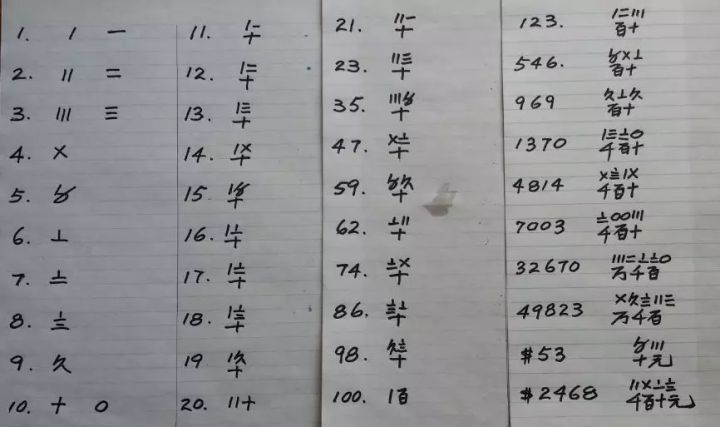 1. 〡 一
2. 〢 二
3. 〣 三
4. 〤
5. 〥
6. 〦
7. 〧
8. 〨
9. 〩
10. 十 0
11. 〡一
十
12. 〡二
十
13. 〡三
十
14. 〡〤
十
15. 〡〥
十
16. 〡〦
十
17. 〡〧
十
18. 〡〨
十
19 〡〩
十
20. 〢十
21. 〢一
十
23. 〢三
十
35. 〣〥
十
47. 〤〧
十
59. 〥〩
十
62. 〦〢
十
74. 〧〤
十
86. 〨〦
十
98. 〩〨
十
100. 〡百
123. 〡二〣
百十
546. 〥〤〦
百十
969 〩〦〩
百十
1370 〡三〧0
千百十
4814 〤〨〡〤
千百十
7003 〧00〣
千百十
32670 〣二〦〧0
万千百
49823 〤〩〨〢三
万千百
$53 〥〣
十元
$2468 〢〤〦〨
千百十元